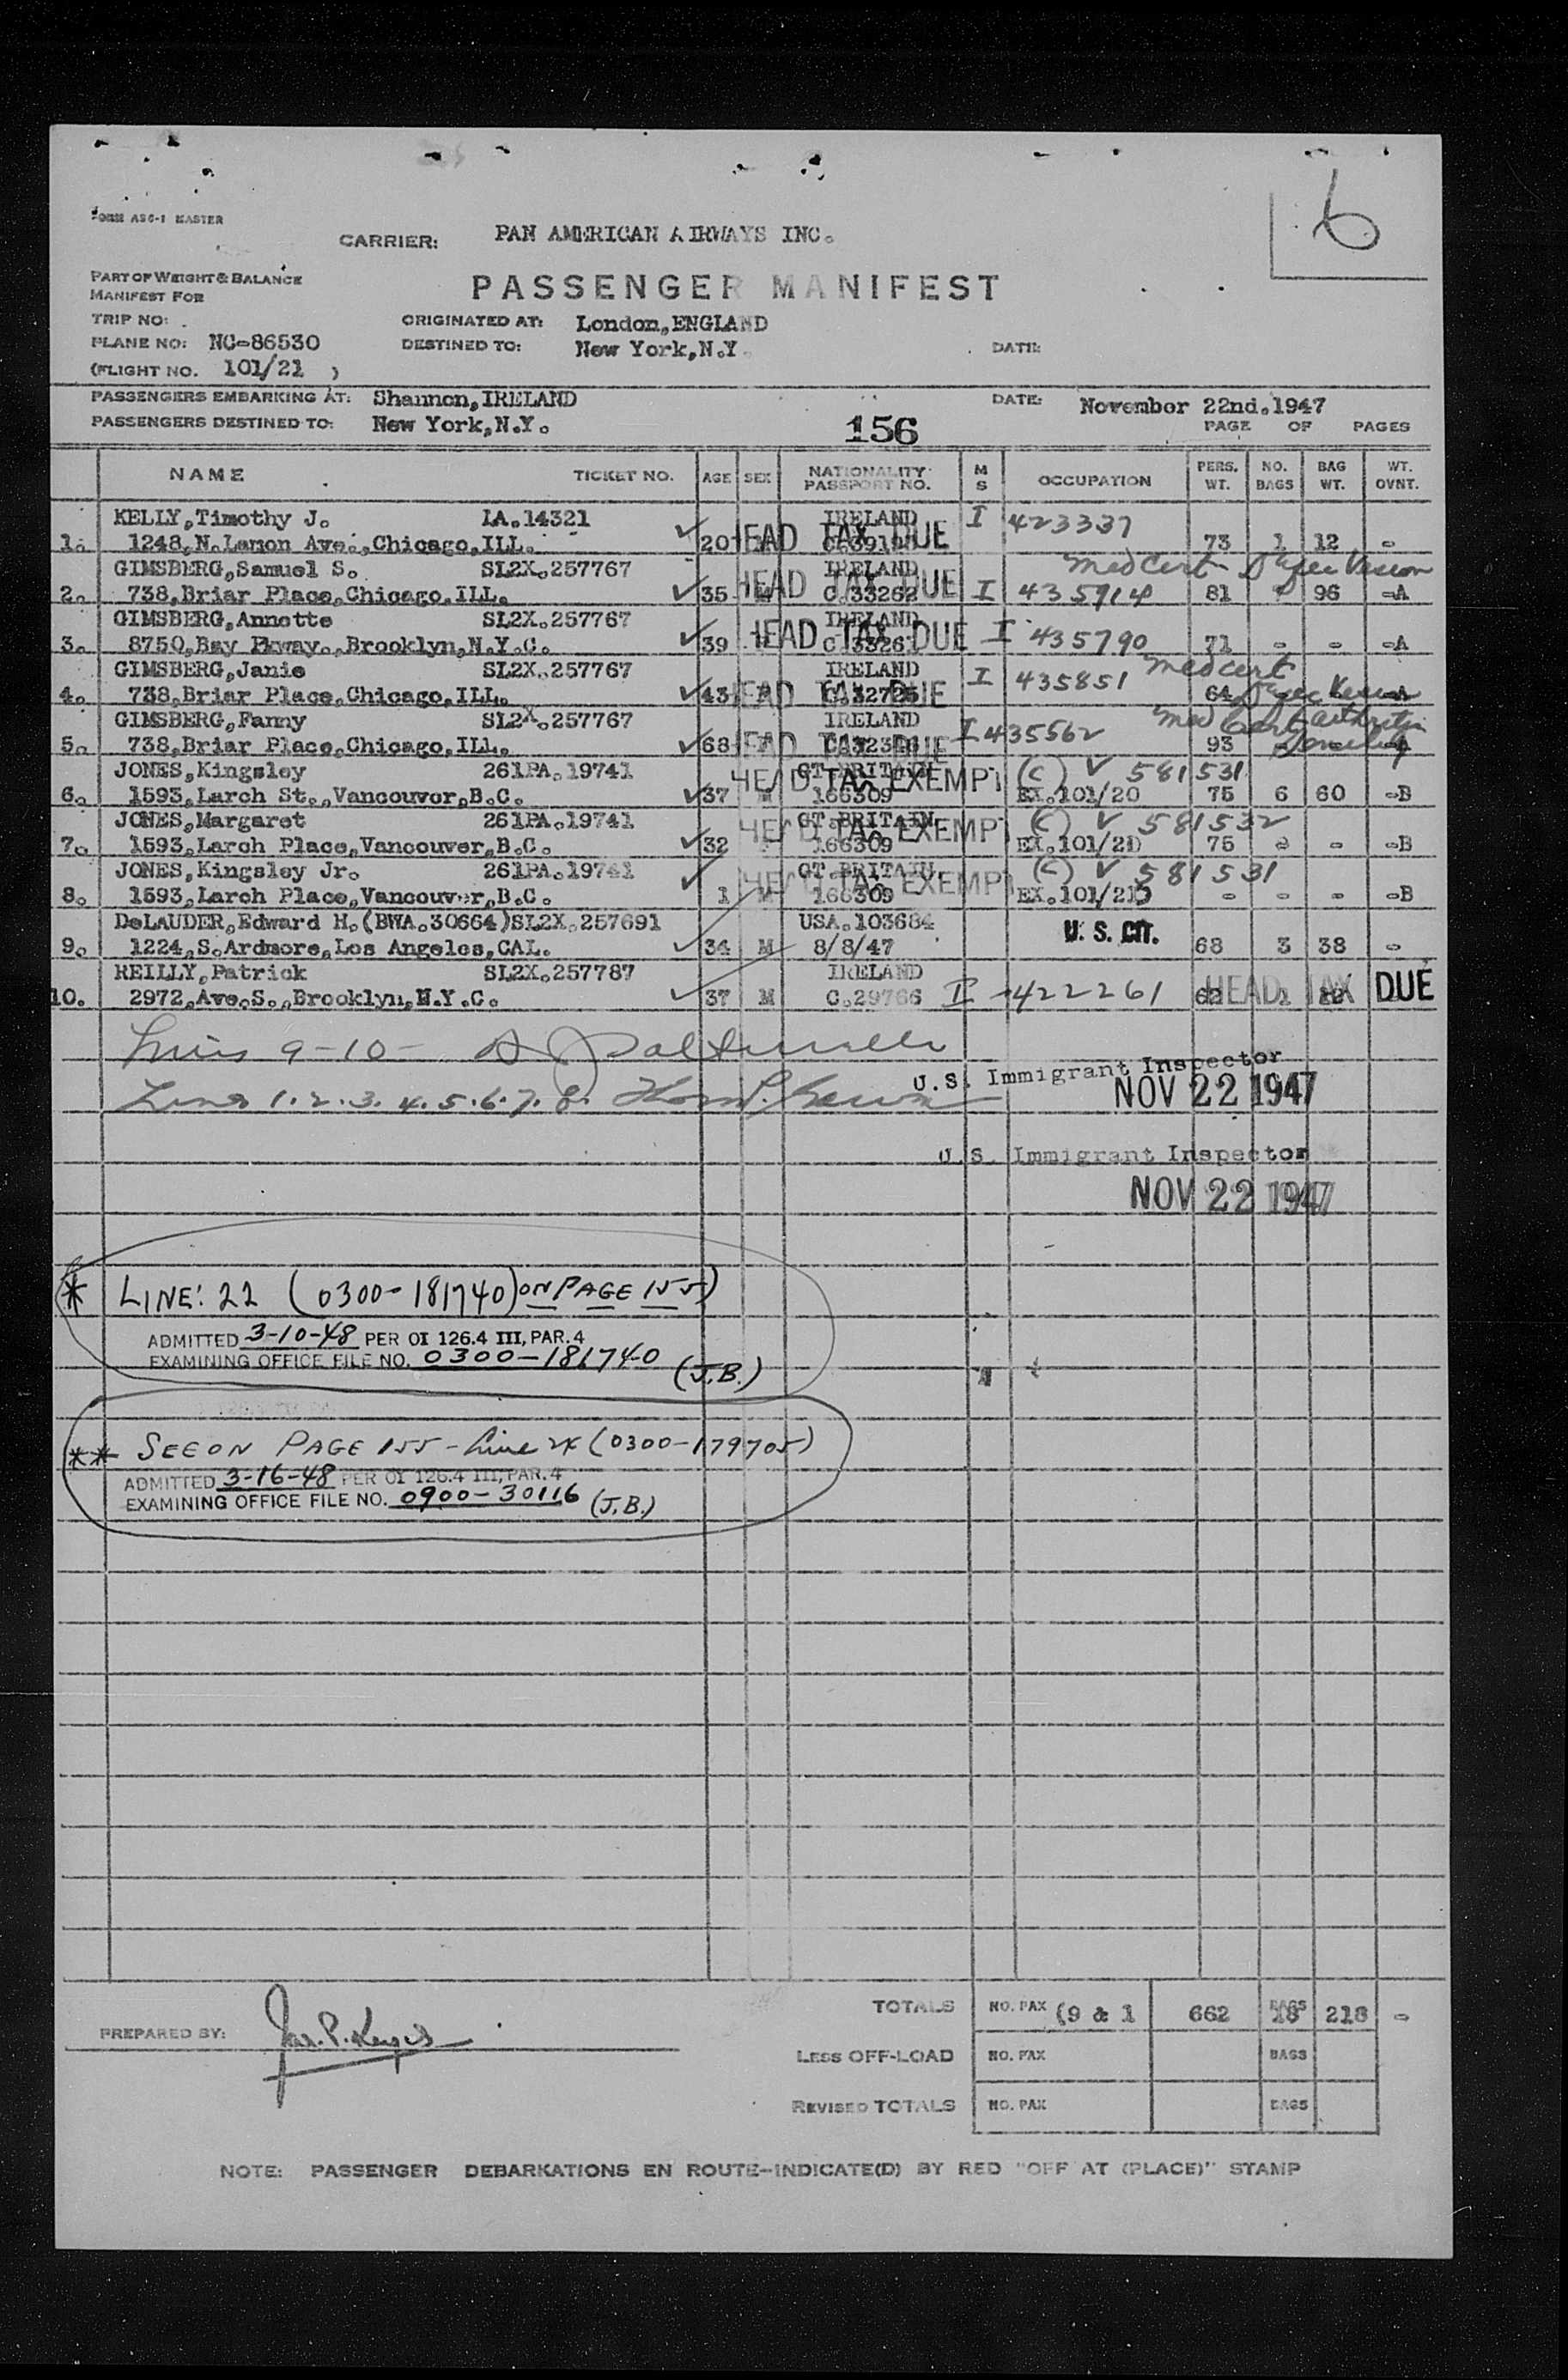 6
FORM ASC-1 MASTER
CARRIER: PAN AMERICAN AIRWAYS INC.
PART OF WEIGHT & BALANCE
MANIFEST FOR
PASSENGER MANIFEST
TRIP NO: ORIGINATED AT: London,ENGLAND
PLANE NO: NC-86530 DESTINED TO: New York,N.Y. DATE:
(FLIGHT NO. 101/21 )
PASSENGERS EMBARKING AT: Shannon,IRELAND DATE: November 22nd.1947
PASSENGERS DESTINED TO: New York,N.Y. 156 PAGE OF PAGES
NAME TICKET NO. AGE SEX NATIONALITY PASSPORT NO. M S OCCUPATION PERS. WT. NO. BAGS BAG WT. WT. OVNT.
KELLY,Timothy J. IA.14321 IRELAND I 423337
1. 1248,N.Lamon Ave.,Chicago,ILL. 20 HEAD TAX DUE 73 1 12 -
GIMSBERG,Samuel S. SL2X.257767 IRELAND Med Cert
2. 738,Briar Place,Chicago,ILL. 35 HEAD TAX DUE C.33262 I 435914 81 96 -A
GIMSBERG,Annette SL2X.257767 IRELAND
3. 8750,Bay Pkway.,Brooklyn,N.Y.C. 39 HEAD TAX DUE I 435790 71 - - -A
GIMSBERG,Janie SL2X.257767 IRELAND I 435851 Med cert
4. 738,Briar Place,Chicago,ILL. 43 HEAD TAX DUE C.32725 64
GIMSBERG,Fanny SL2X.257767 IRELAND I 435562 Med Cert
5. 738,Briar Place,Chicago,ILL. 68 HEAD TAX DUE 93
JONES,Kingsley 261PA.19741 GT.BRITAIN (C) V 581531
6. 1593,Larch St.,Vancouver,B.C. 37 M HEAD TAX EXEMPT 166309 EX.101/20 75 6 60 -B
JONES,Margaret 261PA.19741 GT.BRITAIN (C) V 581532
7. 1593,Larch Place,Vancouver,B.C. 32 HEAD TAX EXEMPT 166309 EX.101/21 75 - - -B
JONES,Kingsley Jr. 261PA.19741 GT.BRITAIN (C) V 581531
8. 1593,Larch Place,Vancouver,B.C. 1 M HEAD TAX EXEMPT 166309 EX.101/21 - - - -B
DeLAUDER,Edward H.(BWA.30664)SL2X.257691 USA.103684 U.S. CIT.
9. 1224,S.Ardmore,Los Angeles,CAL. 34 M 8/8/47 68 3 38 -
REILLY,Patrick SL2X.257787 IRELAND
10. 2972,Ave.S.,Brooklyn,N.Y.C. 37 M C.29766 I 422261 62 1 12 HEAD TAX DUE
Lines 9-10-
U.S. Immigrant Inspector
Lines 1.2.3.4.5.6.7.8. NOV 22 1947
U.S. Immigrant Inspector
NOV 22 1947
* LINE: 22 (0300-181740) ON PAGE 155)
ADMITTED 3-10-48 PER OI 126.4 III, PAR.4
EXAMINING OFFICE FILE NO. 0300-181740 (J.B.)
** SEE ON PAGE 155 - Line 24 (0300-179705)
ADMITTED 3-16-48 PER OI 126.4 III, PAR.4
EXAMINING OFFICE FILE NO. 0900-30116 (J.B.)
TOTALS NO. PAX (9 & 1 662 BAGS 18 218 -
PREPARED BY: Jas. P. Keyes
LESS OFF-LOAD NO. PAX BAGS
REVISED TOTALS NO. PAX BAGS
NOTE: PASSENGER DEBARKATIONS EN ROUTE-INDICATE(D) BY RED "OFF AT (PLACE)" STAMP